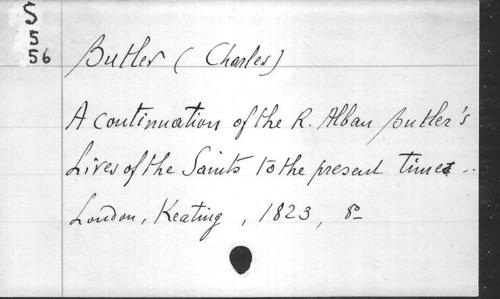 S
5
56
Butler (Charles)
A continuation of the R. Alban Butler's
Lives of the Saints to the present time
London, Keating, 1823, 8º